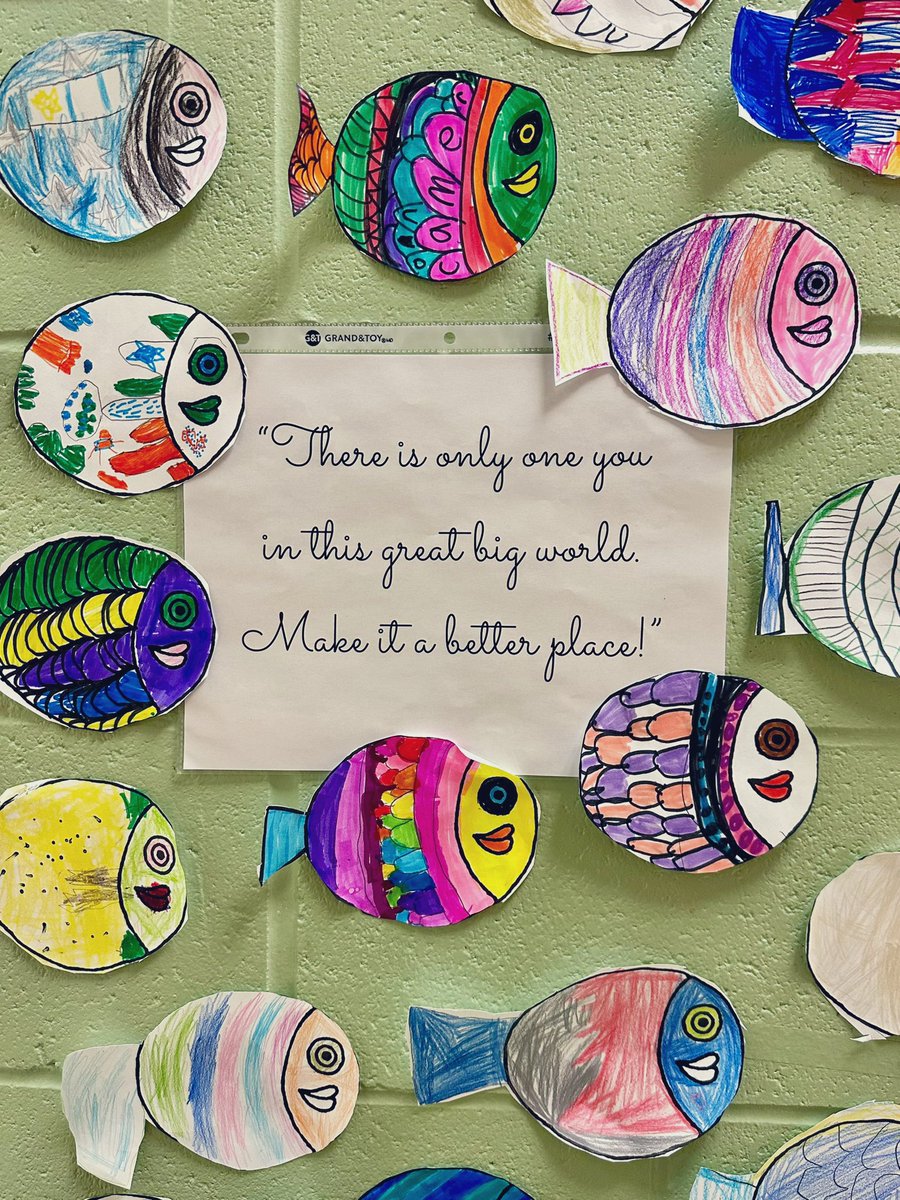 carmen
G&T GRAND&TOY
“There is only one you
in this great big world.
Make it a better place!”